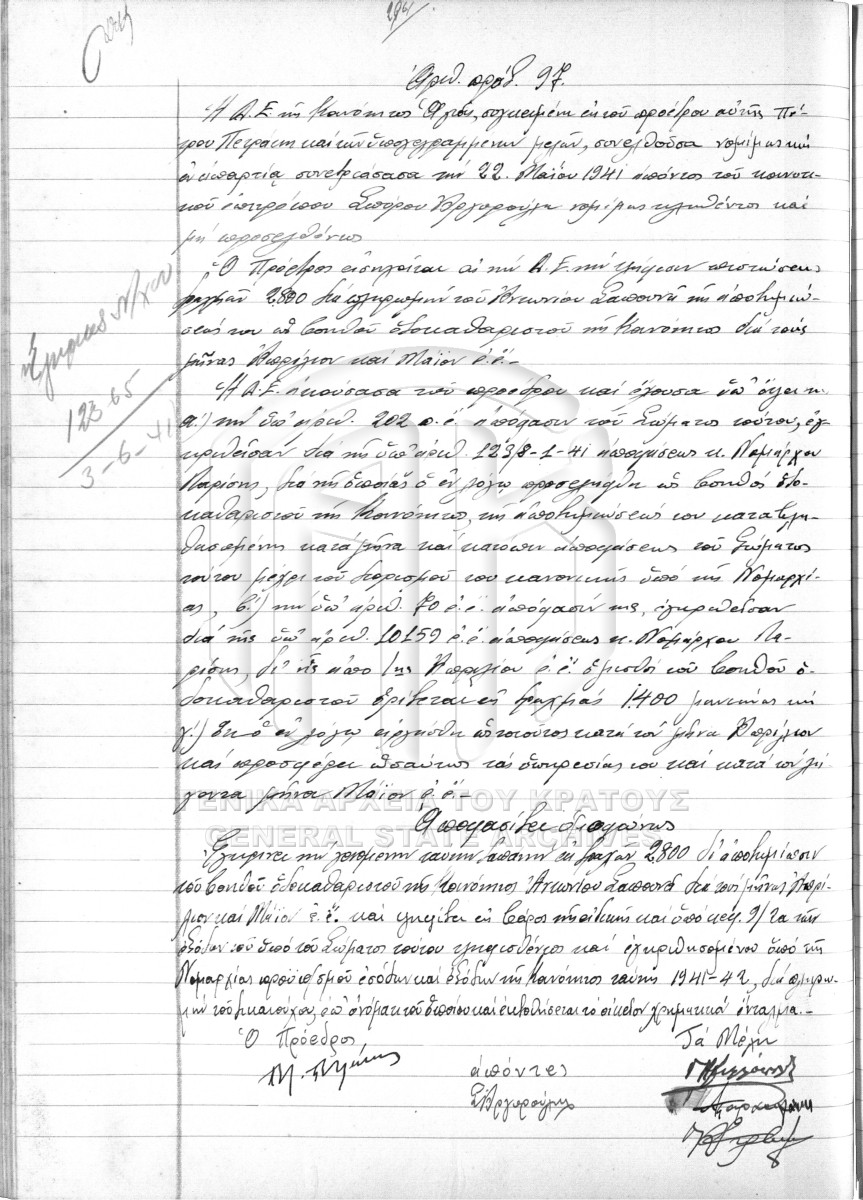 294
Ἀριθ. πράξ. 97.
Ἡ Δ.Ε. τῆς Κοινότητος Ἁγιᾶς, συγκειμένη ἐκ τοῦ προέδρου αὐτῆς Πέ-
τρου Πετράκη καὶ τῶν ὑπογεγραμμένων μελῶν, συνελθοῦσα νομίμως καὶ
ἐν ἀπαρτίᾳ συνεδριάσασα τὴν 22 Μαΐου 1941 ἀπόντος τοῦ κοινοτι-
κοῦ ἐπιτρόπου Σπύρου Ἀργυρούλη νομίμως κληθέντος καὶ
μὴ προσελθόντος
Ὁ Πρόεδρος εἰσηγεῖται εἰς τὴν Δ.Ε. τὴν ψήφισιν πιστώσεως
δραχμῶν 2.800 διὰ πληρωμὴν τοῦ Ἀντωνίου Σαπουνᾶ τῆς ἀποζημιώ-
σεώς του ὡς βοηθοῦ ὁδοκαθαριστοῦ τῆς Κοινότητος διὰ τοὺς
μῆνας Ἀπρίλιον καὶ Μάϊον ἐ.ἔ.-
Ἡ Δ.Ε. ἀκούσασα τοῦ προέδρου καὶ ἔχουσα ὑπ' ὄψει της
α.) τὴν ὑπ' ἀριθ. 202 π.ἔ. ἀπόφασιν τοῦ Σώματος τούτου, ἐγ-
κριθεῖσαν διὰ τῆς ὑπ' ἀριθ. 123/8-1-41 ἀποφάσεως κ. Νομάρχου
Λαρίσης, διὰ τῆς ὁποίας ὁ ἐν λόγῳ προσελήφθη ὡς βοηθὸς ὁδο-
καθαριστοῦ τῆς Κοινότητος, τῆς ἀποζημιώσεώς του καταβλη-
θησομένης κατὰ μῆνα καὶ κατόπιν ἀποφάσεως τοῦ Σώματος
τούτου μέχρι τοῦ διορισμοῦ του κανονικῆς ὑπὸ τῆς Νομαρχί-
ας, β.) τὴν ὑπ' ἀριθ. 70 ἐ.ἔ. ἀπόφασίν της, ἐγκριθεῖσαν
διὰ τῆς ὑπ' ἀριθ. 10159 ἐ.ἔ. ἀποφάσεως κ. Νομάρχου Λα-
ρίσης, δι' ἧς ἀπὸ 1ης Ἀπριλίου ἐ.ἔ. ὁ μισθὸς τοῦ βοηθοῦ ὁ-
δοκαθαριστοῦ ὁρίζεται εἰς δραχμὰς 1.400 μηνιαίως καὶ
γ.) ὅτι ὁ ἐν λόγῳ εἰργάσθη ὡς τοιοῦτος κατὰ τὸν μῆνα Ἀπρίλιον
καὶ προσφέρει ὡσαύτως τὰς ὑπηρεσίας του καὶ κατὰ τὸν λή-
γοντα μῆνα Μάϊον ἐ.ἔ.-
Ἀποφασίζει ὁμοφώνως
Ἐγκρίνει τὴν γενομένην ταύτην δαπάνην ἐκ δραχμῶν 2.800 δι' ἀποζημίωσιν
τοῦ βοηθοῦ ὁδοκαθαριστοῦ τῆς Κοινότητος Ἀντωνίου Σαπουνᾶ διὰ τοὺς μῆνας Ἀπρί-
λιον καὶ Μάϊον ἐ.ἔ. καὶ ψηφίζει εἰς βάρος τῆς εἰδικῆς καὶ ὑπὸ κεφ. 9/ τῶν
ἐξόδων τοῦ ὑπὸ τοῦ Σώματος τούτου ψηφισθέντος καὶ ἐγκριθησομένου ὑπὸ τῆς
Νομαρχίας προϋπ/σμοῦ ἐσόδων καὶ ἐξόδων τῆς Κοινότητος ταύτης 1941-42, διὰ πληρω-
μὴν τοῦ δικαιούχου, ἐπ' ὀνόματι τοῦ ὁποίου καὶ ἐκδοθήσεται τὸ οἰκεῖον χρηματικὸν ἔνταλμα.-
Ὁ Πρόεδρος
ἀπόντες
Σ. Ἀργυρούλης
Τὰ Μέλη
12365
3-6-41
ΓΕΝΙΚΑ ΑΡΧΕΙΑ ΤΟΥ ΚΡΑΤΟΥΣ
GENERAL STATE ARCHIVES